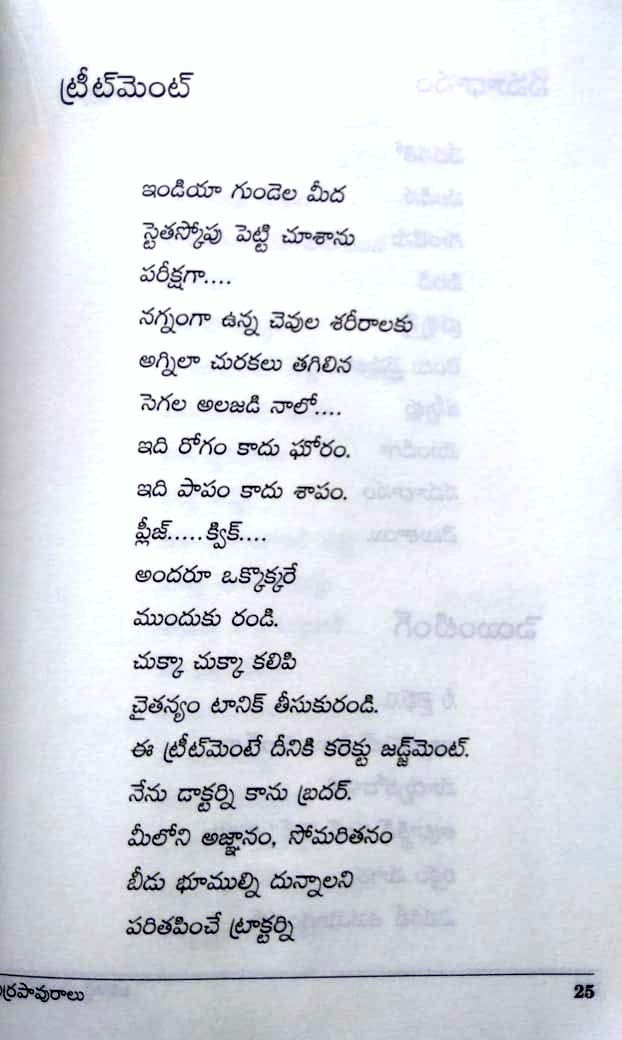 ట్రీట్‌మెంట్
ఇండియా గుండెల మీద
స్టెతస్కోపు పెట్టి చూశాను
పరీక్షగా....
నగ్నంగా ఉన్న చెవుల శరీరాలకు
అగ్నిలా చురకలు తగిలిన
సెగల అలజడి నాలో....
ఇది రోగం కాదు ఘోరం.
ఇది పాపం కాదు శాపం.
ప్లీజ్.....క్విక్....
అందరూ ఒక్కొక్కరే
ముందుకు రండి.
చుక్కా చుక్కా కలిపి
చైతన్యం టానిక్ తీసుకురండి.
ఈ ట్రీట్‌మెంటే దీనికి కరెక్టు జడ్జ్‌మెంట్.
నేను డాక్టర్ని కాను బ్రదర్.
మీలోని అజ్ఞానం, సోమరితనం
బీడు భూముల్ని దున్నాలని
పరితపించే ట్రాక్టర్ని
25